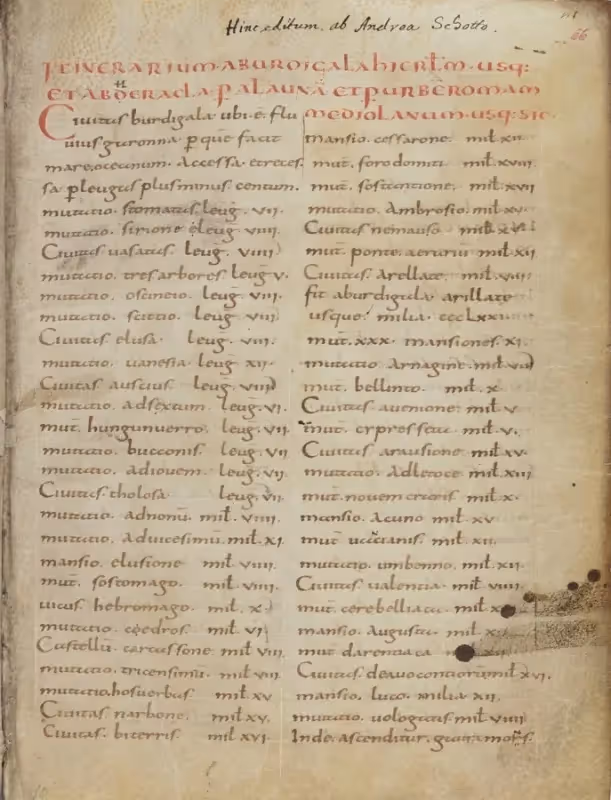 Hinc editum ab Andrea Schotto.
66
ITINERARIUM A BURDIGALA HIERUSALEM USQ:
ET AB HERACLA P AULONA ET PUR BE ROMAM
MEDIOLANUM USQ: SIC
Civitas burdigala ubi ē flu
vius garonna p que facit
mare oceanum accessa et reces
sa p leugas plus minus centum.
mutatio stomatas leug. vii.
mutatio sirione leug viiii
Civitas vasatas leug. viiii
mutatio tres arbores leug v.
mutatio oscineio leug viii
mutatio scittio leug viii
Civitas elusa leug viii
mutatio vanesia leug xii.
Civitas auscius leug viii
mutatio ad sextum leug. vi.
mut. hungunverro leug. vii.
mutatio bucconis leug vii
mutatio ad iovem leug. vii
Civitas tholosa leug. vii.
mutatio ad nonū mil. viiii.
mutatio ad vicesimū mil. xi.
mansio elusione mil viiii.
mut. sostomago mil. viiii.
vicus hebromago mil. x.
mutatio cedros mil vi
Castellū carcassone mil. viii
mutatio tricensimū mil. viii
mutatio hosverbas mil xv
Civitas narbone. mil xv.
Civitas biterris. mil xvi.
mansio cessarone. mil xii
mut. foro domiti. mil. xviii.
mut. sostantione. mil. xvii
mut. Ambrosio. mil xv.
Civitas nemauso mil
mut. ponte aerarii mil xii
Civitas arellate. mil. viii
fit a burdigala arillate
usque. milia ccclxxi
mut. xxx. mansiones xi.
mutatio Arnagine mil viii
mut. bellinto. mil. x
Civitas avenione mil v
mut. cypresseta mil v.
Civitas arausione mil. xv
mutatio Ad letoce mil. xiii
mut. novem craris mil. x.
mansio Acuno mil xv
mut vancianis. mil. xii.
mutatio umbenno. mil. xii.
Civitas valentia mil viiii
mut cerebelliaca mil
mansio Augusta mil
mut darentiaca
Civitas dea vocontiorū mil xvi.
mansio. luco. milia xii.
mutatio vologatis mil viiii
Inde ascenditur gaura mons